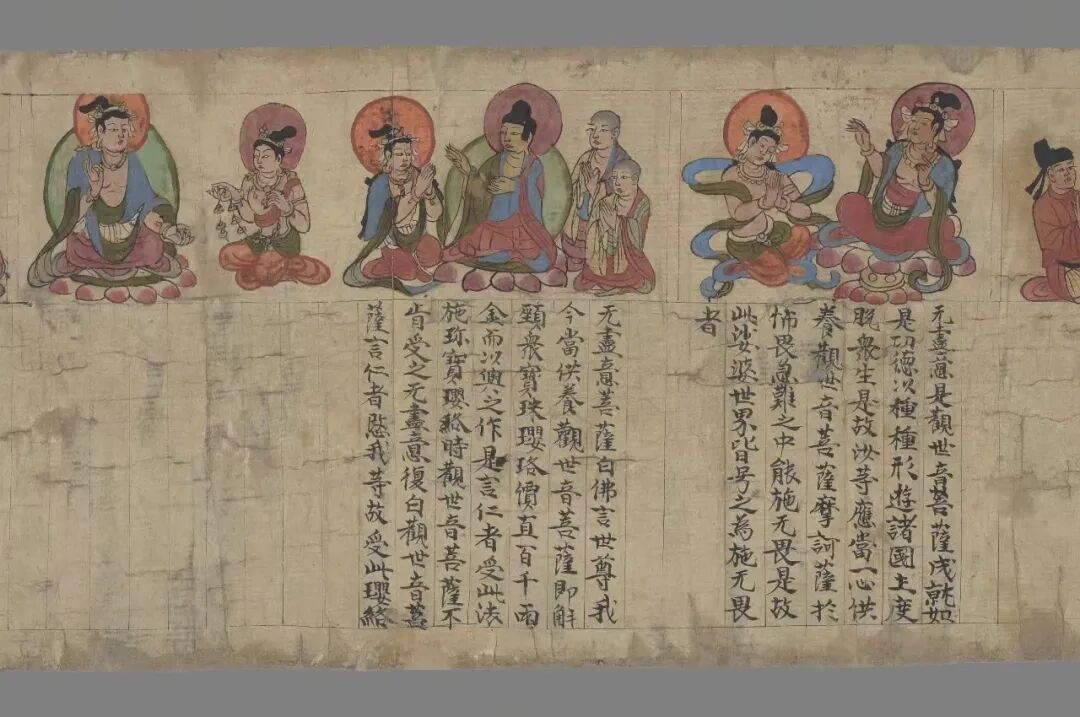 无盡意是觀世音菩薩成就如
是功德以種種形遊諸國土度
脱衆生是故汝等應當一心供
養觀世音菩薩摩訶薩於
怖畏急難之中能施无畏是故
此娑婆世界皆号之為施无畏
者
无盡意菩薩白佛言世尊我
今當供養觀世音菩薩即解
頸衆寶珠瓔珞價直百千兩
金而以與之作是言仁者受此法
施珎寶瓔絡時觀世音菩薩不
肯受之无盡意復白觀世音菩
薩言仁者愍我等故受此瓔絡